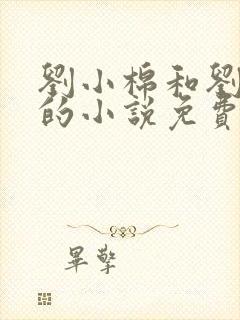 劉小棉和劉
的小說免費
畢擎